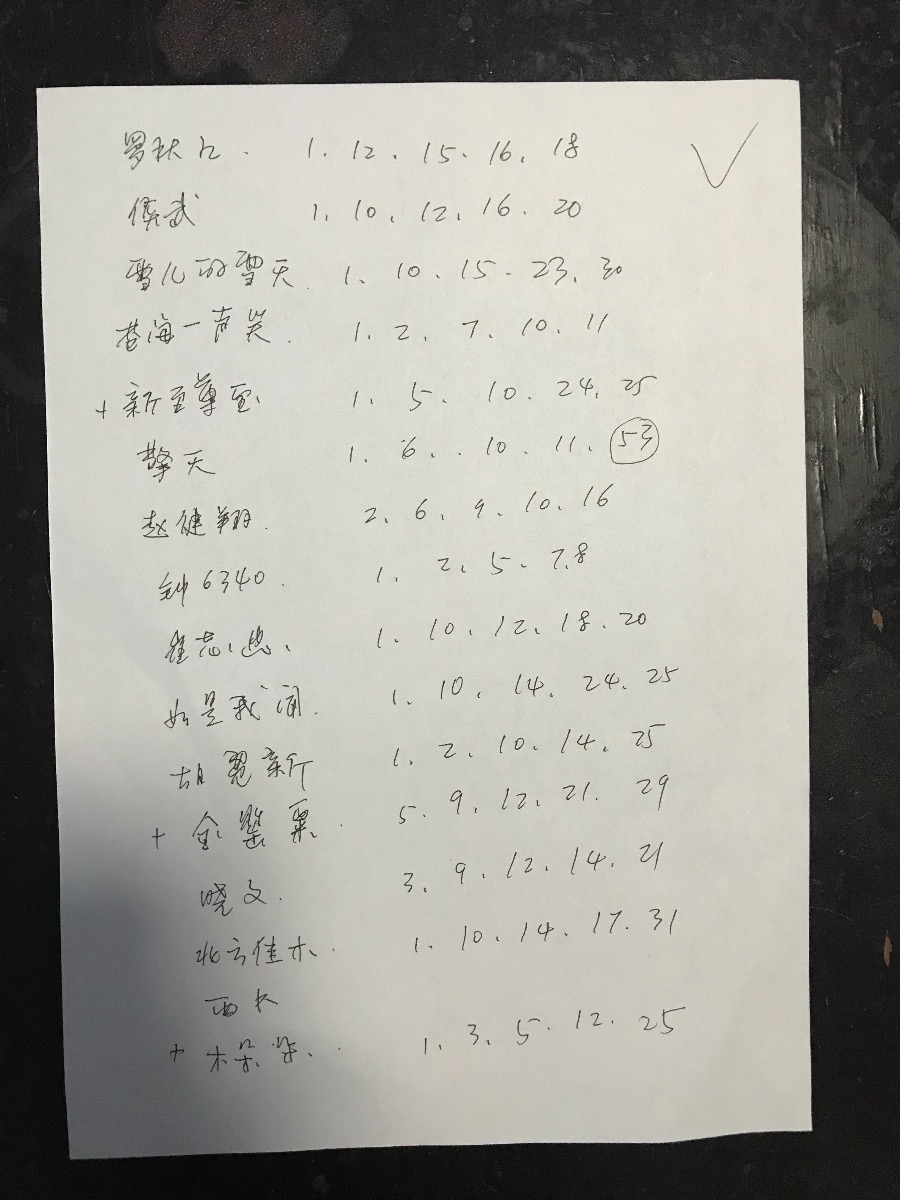 罗秋江. 1. 12. 15. 16. 18
侯武 1. 10. 12. 16. 20
雪儿的雪天. 1. 10. 15. 23. 30
苍海一声笑. 1. 2. 7. 10. 11
+ 新至尊宝. 1. 5. 10. 24. 25
擎天 1. 6. 10. 11. 53
赵健翔. 2. 6. 9. 10. 16
钟6340. 1. 2. 5. 7. 8
1. 10. 12. 18. 20
如是我闻. 1. 10. 14. 24. 25
胡冕新 1. 2. 10. 14. 25
+ 金 5. 9. 12. 21. 29
晓文. 3. 9. 12. 14. 21
北方佳木. 1. 10. 14. 17. 31
西木
+ 木朵朵. 1. 3. 5. 12. 25